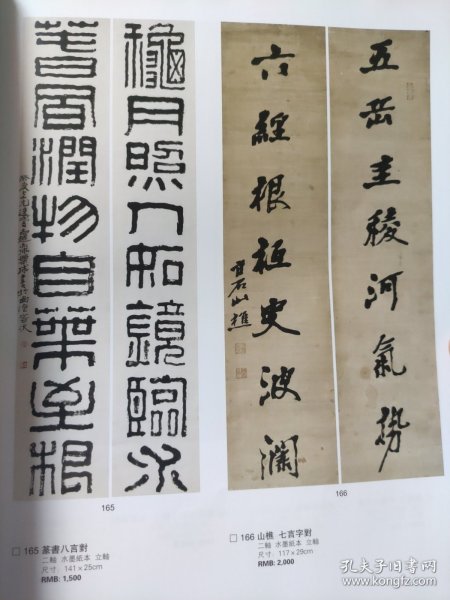 秋月照人如鏡臨水
春雨潤物自葉至根
165
五岳圭稜河氣勢
六經根柢史波瀾
石山樵
166
165 篆書八言對
二軸 水墨紙本 立軸
尺寸：141×25cm
RMB: 1,500
166 山樵 七言字對
二軸 水墨紙本 立軸
尺寸：117×29cm
RMB: 2,000
孔夫子旧书网